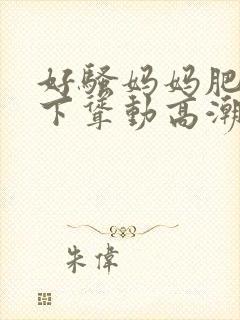 好骚妈妈肥
下耸动高潮
朱偉